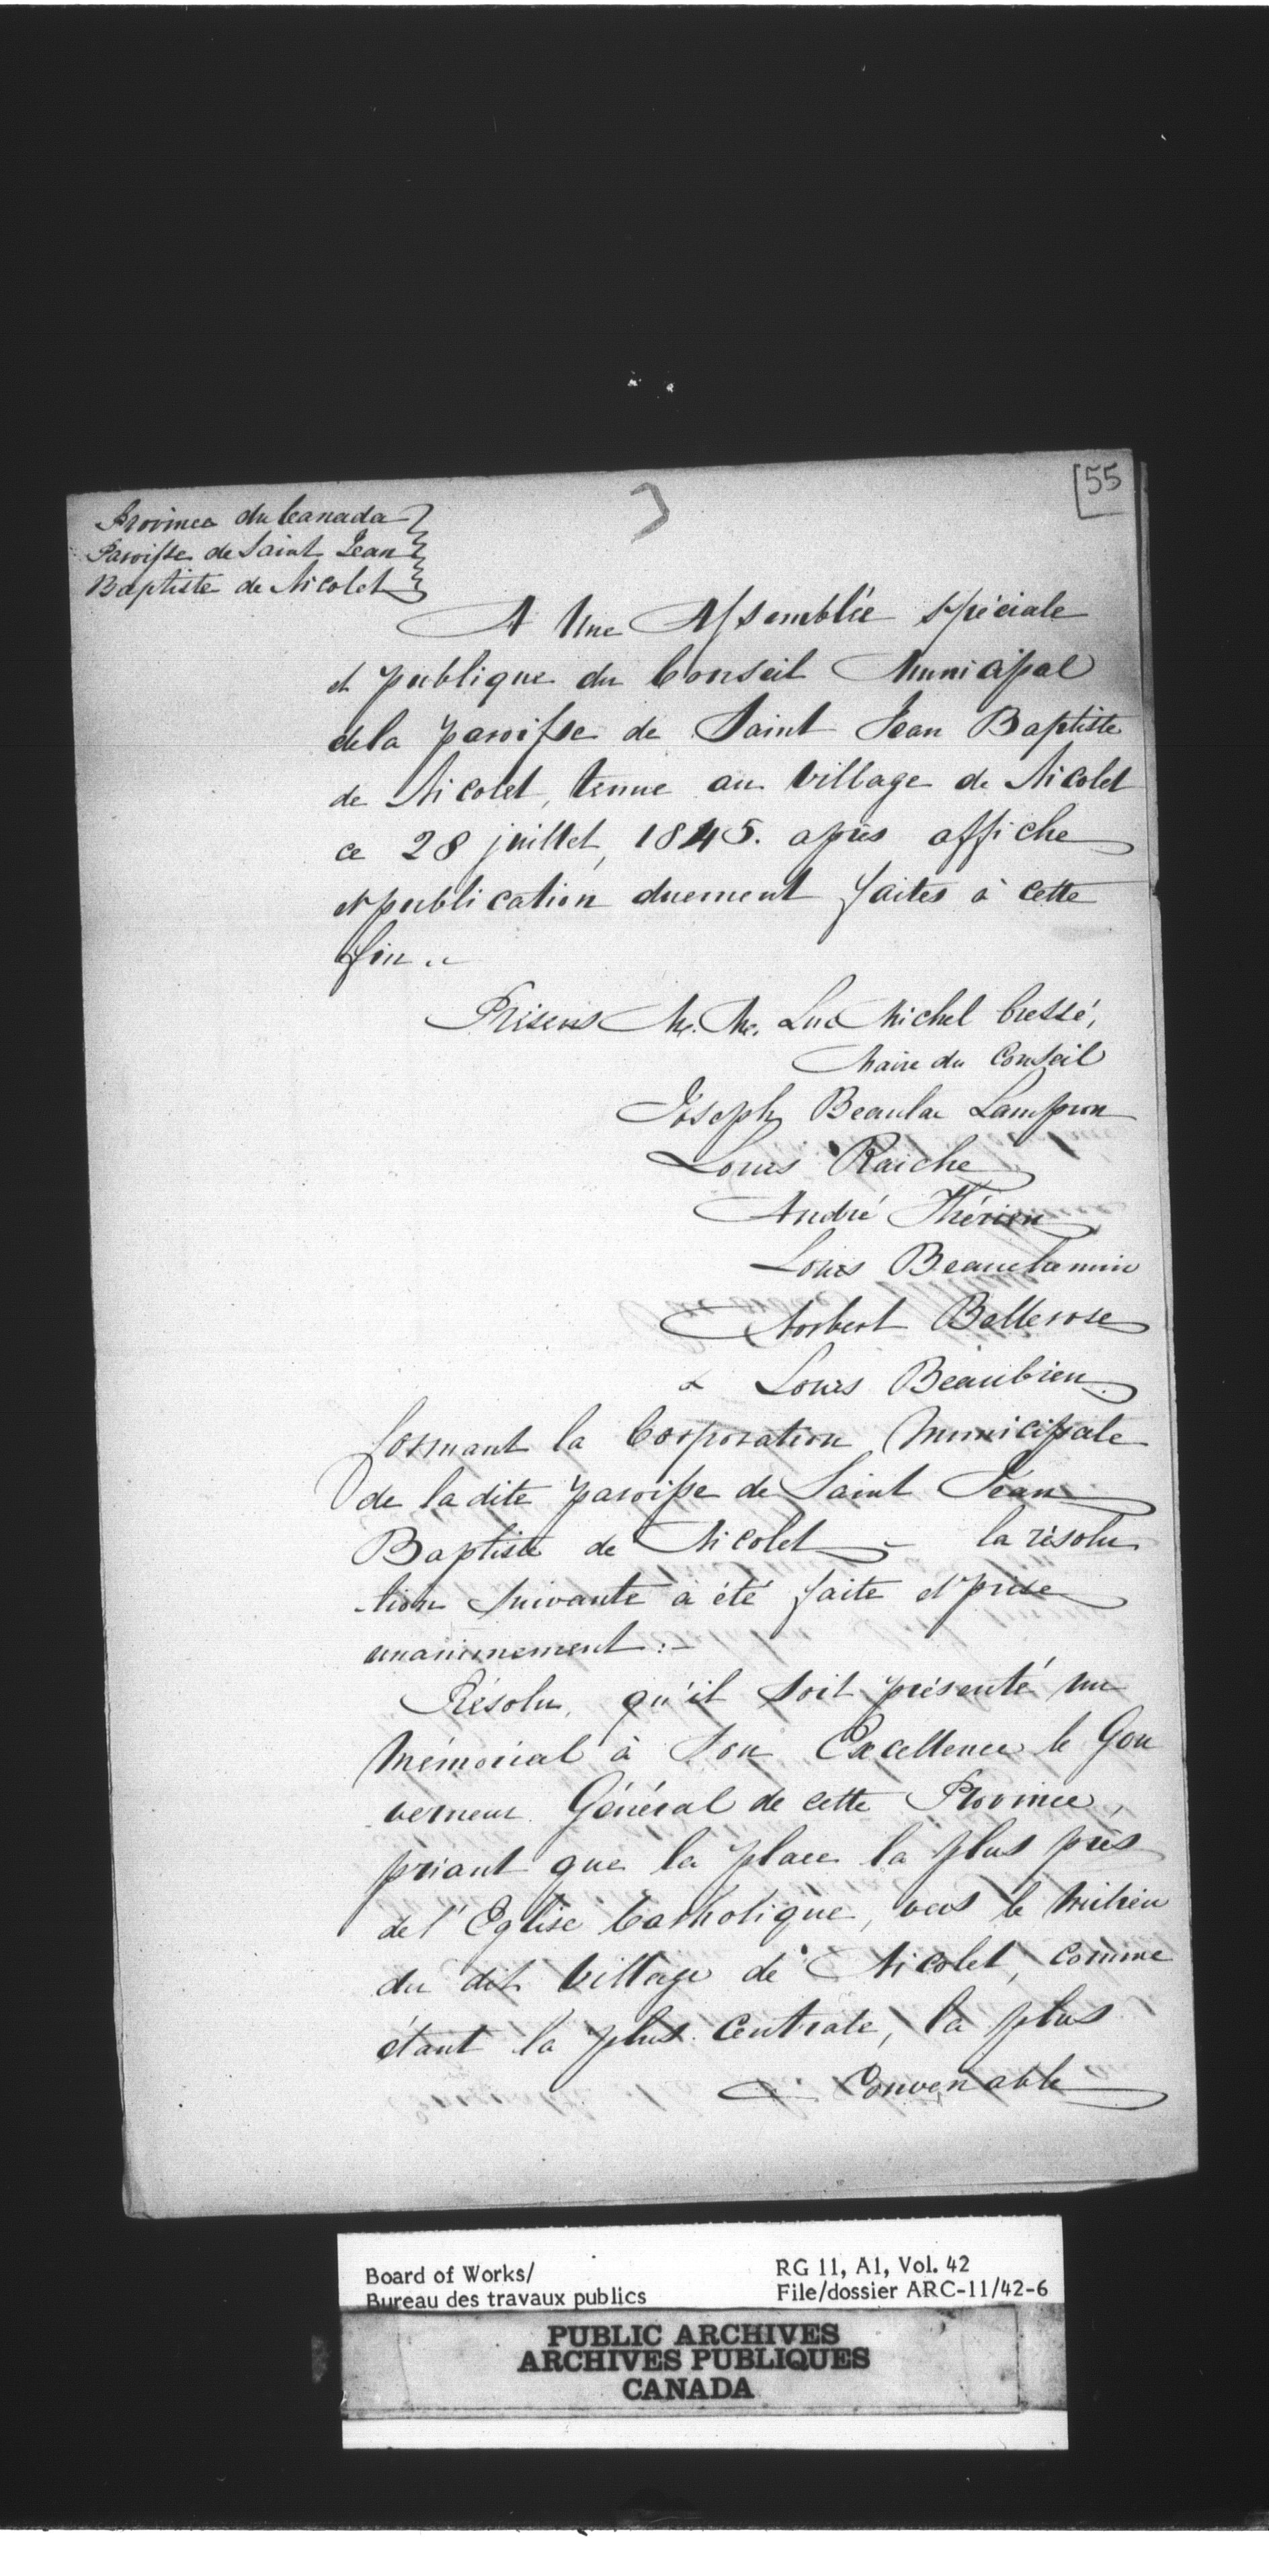 [55
Province du Canada
Paroisse de Saint Jean
Baptiste de Nicolet
A Une Assemblée spéciale
et publique du Conseil Municipal
dela paroisse de Saint Jean Baptiste
de Nicolet, tenue au village de Nicolet
ce 28 juillet, 1845. après affiche
et publication duement faites à cette
fin..
Présens M. M. Luc Michel Cressé,
Maire du Conseil
Joseph Beaulac Lampron
Louis Raiche
André Thérien
Louis
Norbert Bellerose
& Louis Beaubien
formant la Corporation Municipale
de la dite paroisse de Saint Jean
Baptiste de Nicolet - la résolu
-tion suivante a été faite et prise
unanimement :-
Résolu, qu'il soit présenté un
Mémorial à Son Excellence le Gou
verneur Général de cette Province,
priant que la place la plus près
de l'Eglise Catholique, vers le milieu
du dit Village de Nicolet, comme
étant la plus Centrale, la plus
Convenable
Board of Works/
Bureau des travaux publics
RG 11, A1, Vol. 42
File/dossier ARC-11/42-6
PUBLIC ARCHIVES
ARCHIVES PUBLIQUES
CANADA